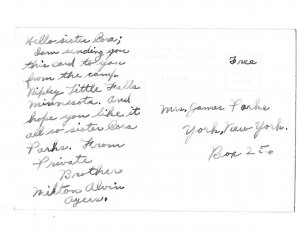 Hello sister Cora;
I am sending you
this card to you
from the camp
Ripley Little Falls
Minnesota. And
hope you like it
all so sister Cora
Parks. From
Private
Brother
Milton Alvin
Ayers.
Free
Mrs. James Parks
York, New York.
Box 256